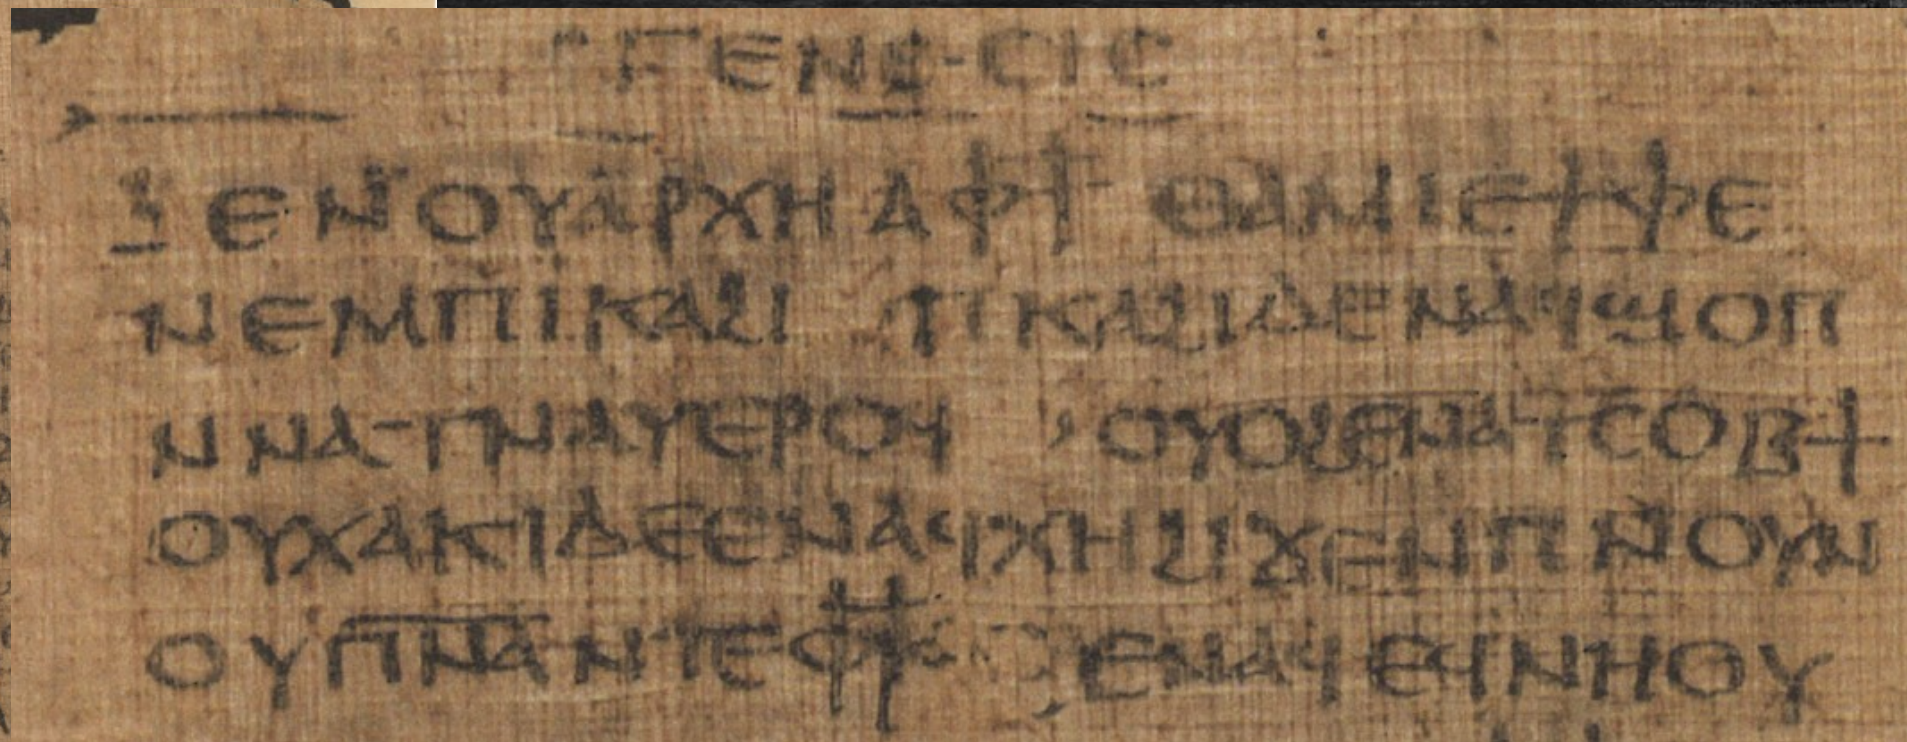 ⲅⲉⲛⲉ-ⲥⲓⲥ
ϧⲉⲛⲟⲩⲁⲣⲭⲏⲁⲫϯ ⲑⲁⲙⲓⲉϯⲫⲉ
ⲛⲉⲙⲡⲓⲕⲁϩⲓ ⲡⲕⲁϩⲓⲇⲉⲛⲁϥϣⲟⲡ
ⲛⲛⲁ-ⲧⲛⲁⲩⲉⲣⲟϥ ⲟⲩⲟϩⲉⲛⲁⲧⲥⲟⲃϯ
ⲟⲩⲭⲁⲕⲓⲇⲉⲉⲛⲁϥⲭⲏϩⲓϫⲉⲛⲡⲛⲟⲩⲛ
ⲟⲩⲡ̅ⲛ̅ⲁ̅ⲛⲧⲉⲫϯ ⲉⲛⲁϥⲉϥⲛⲏⲟⲩ